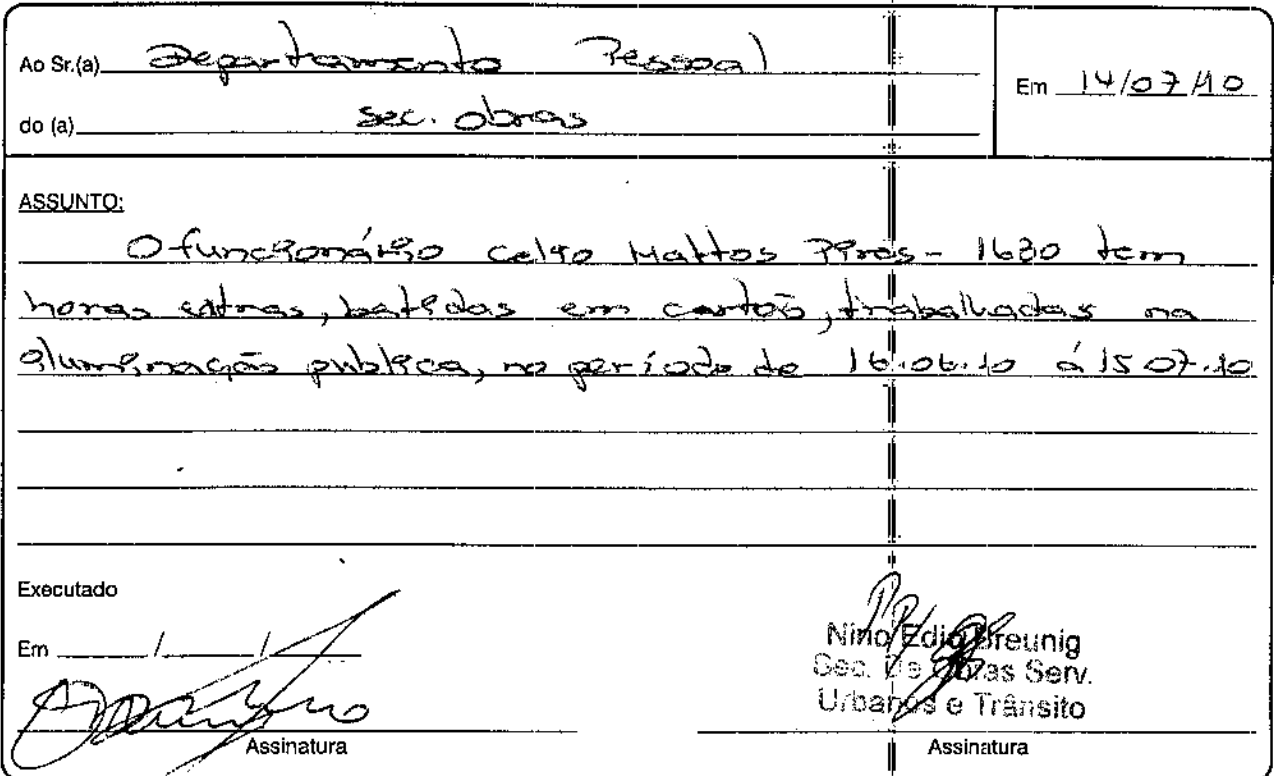 Ao Sr.(a) Departamento Pessoal
Em 14/07/10
do (a) sec. obras
ASSUNTO:
O funcionário Celso Mattos Pires - 1630 tem
horas extras, batidas em cartão, trabalhadas na
iluminação publica, no período de 16.06.10 á 15.07.10
Executado
Em / /
Nino Edio Breunig
Sec. De Obras Serv.
Urbanos e Trânsito
Assinatura
Assinatura